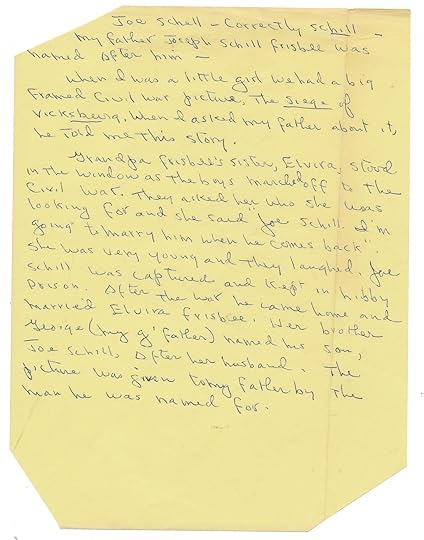 Joe Schell – Correctly Schill –
my father Joseph Schill Frisbee was
named after him –
When I was a little girl we had a big
Framed Civil War picture, The Siege of
Vicksberg, When I asked my father about it,
he told me this story.
Grandpa Frisbee's sister, Elvira, stood
in the window as the boys marched off to the
Civil War. They asked her who she was
looking for and she said "Joe Schill. I'm
going to marry him when he comes back".
She was very young and they laughed. Joe
Schill was captured and kept in Libby
Prison. After the war he came home and
married Elvira Frisbee. Her brother
George (my g'father) named his son,
Joe Schill, after her husband. The
picture was given to my father by the
man he was named for.